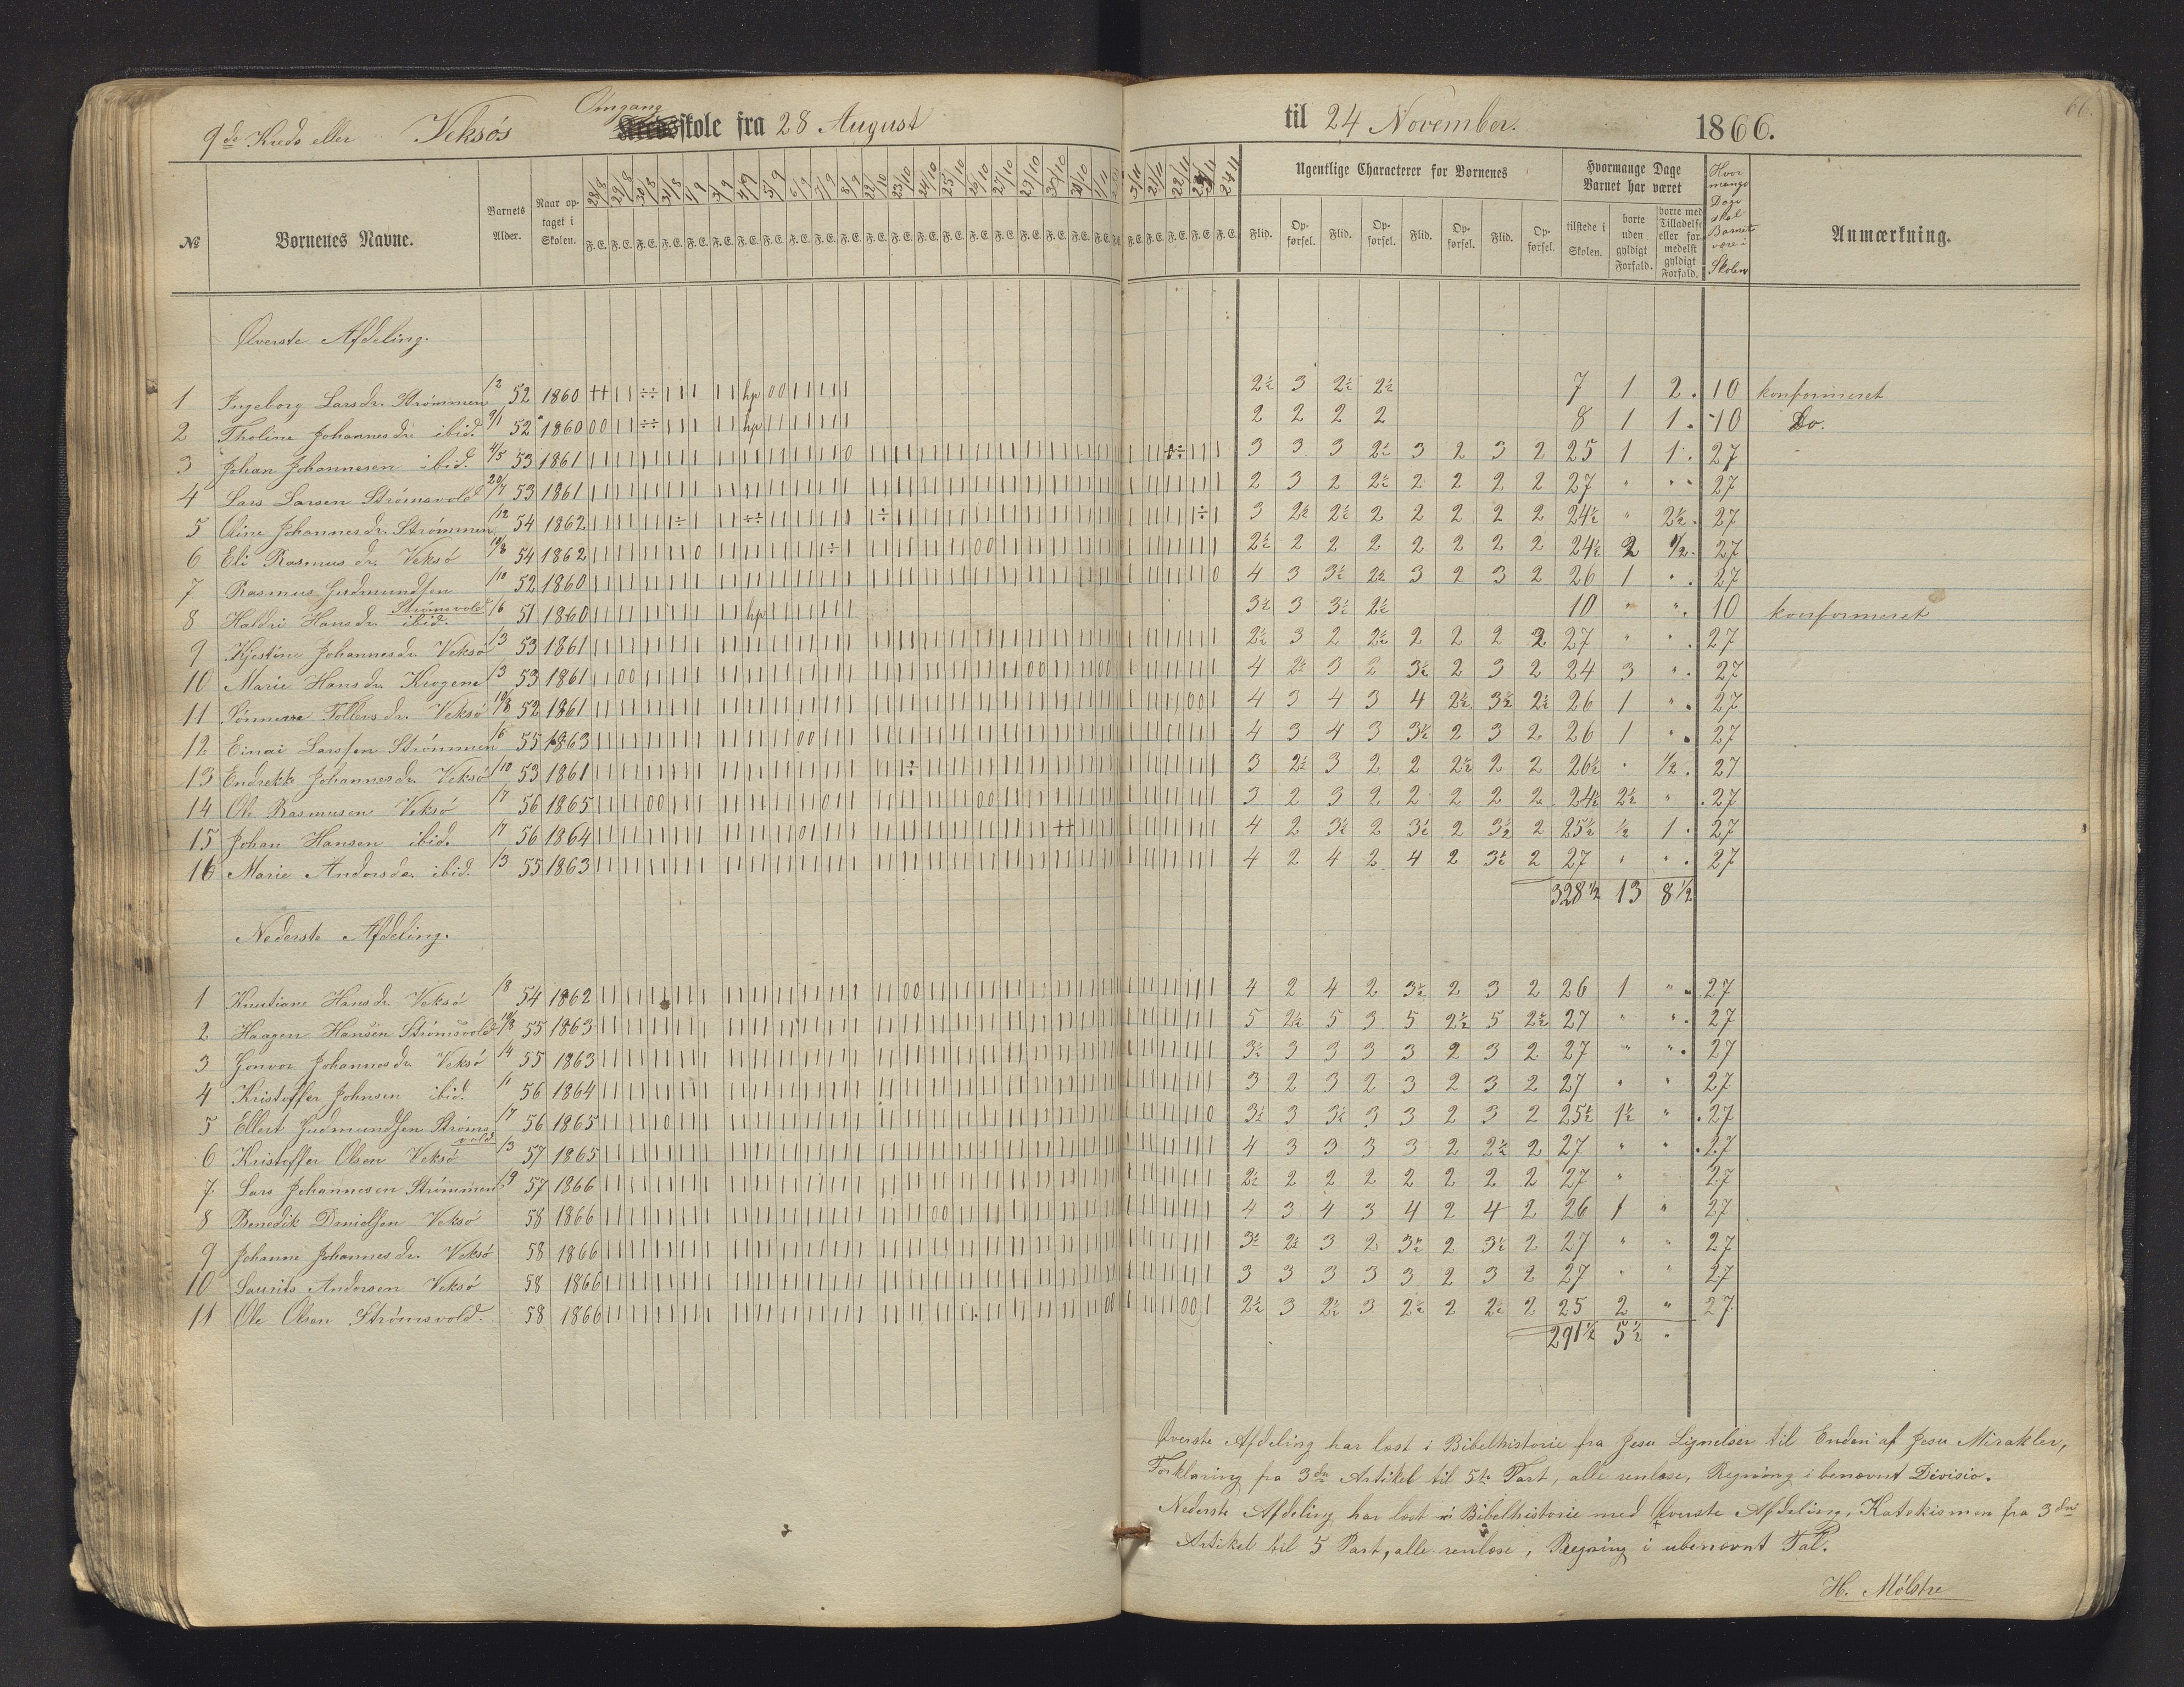 66.
9de Kreds eller Veksøs Omgangsskole fra 28 August til 24 November. 1866.
№ Børnenes Navne. Barnets Alder. Naar optaget i Skolen. 28/8 29/8 30/8 31/8 1/9 3/9 4/9 5/9 6/9 7/9 8/9 22/10 23/10 24/10 25/10 26/10 27/10 29/10 30/10 31/10 1/11 3/11 21/11 22/11 23/11 24/11
Ugentlige Characterer for Børnenes Flid. Opførsel. Flid. Opførsel. Flid. Opførsel. Flid. Opførsel.
Hvormange Dage Barnet har været tilstede i Skolen. borte uden gyldigt Forfald. borte med Tilladelse eller formedelst gyldigt Forfald.
Hvor mange Dage skal Barnet være i Skolen
Anmærkning.
Øverste Afdeling.
1 Ingeborg Larsdr. Strømmen 12 52 1860 2½ 3 2½ 2½ 7 1 2 10 konfirmeret
2 Tholine Johannesdr. ibid. 9/1 52 1860 2 2 2 2 8 1 1 10 Do.
3 Johan Johannesen ibid. 4/5 53 1861 3 3 3 2½ 3 2 3 2 25 1 1 27
4 Lars Larsen Strømsvold 20/7 53 1861 2 3 2 2½ 2 2 2 2 27 " " 27
5 Oline Johannesdr. Strømmen 12 54 1862 3 2½ 2½ 2 2 2 2 2 24½ " 2½ 27
6 Eli Rasmusdr. Veksø 10/8 54 1862 2½ 2 2 2 2 2 2 2 24½ 2 1/2 27
7 Rasmus Gudmundsen Strømsvold 10 52 1860 4 3 3½ 2½ 3 2 3 2 26 1 " 27
8 Haldri Hansdr. ibid. 6 51 1860 3½ 3 3½ 2½ 10 " " 10 konfirmeret
9 Kjestine Johannesdr. Veksø 3 53 1861 2½ 3 2 2½ 2 2 2 2 27 " " 27
10 Marie Hansdr. Krogene 3 53 1861 4 2½ 3 2 3½ 2 3 2 24 3 " 27
11 Tollevsdr. Veksø 10/8 52 1861 4 3 4 3 4 2½ 3½ 2½ 26 1 " 27
12 Einai Larssen Strømmen 6 55 1863 4 3 4 3 3½ 2 3 2 26 1 " 27
13 Endrekke Johannesdr. Veksø 10 53 1861 3 2½ 3 2 2 2½ 2 2 26½ " 1/2 27
14 Ole Rasmusen Veksø 7 56 1865 3 2 3 2 2 2 2 2 24½ 2½ " 27
15 Johan Hansen ibid. 7 56 1864 4 2 3½ 2 3½ 2 3½ 2 25½ ½ 1 27
16 Marie Andersdr. ibid. 3 55 1863 4 2 4 2 4 2 3½ 2 27 " " 27
328½ 13 8½
Nederste Afdeling.
1 Kristiane Hansdr. Veksø 8 54 1862 4 2 4 2 3½ 2 3 2 26 1 " 27
2 Haagen Hansen Strømsvold 10/8 55 1863 5 2½ 5 3 5 2½ 5 2½ 27 " " 27
3 Gonvor Johannesdr. Veksø 4 55 1863 3½ 3 3 3 3 2 3 2 27 " " 27
4 Kristoffer Johnsen ibid. 11 56 1864 3 2 3 2 3 2 3 2 27 " " 27
5 Ellert Gudmundsen Strømsvold 7 56 1865 3½ 3 3½ 3 3 2 3 2 25½ 1½ " 27
6 Kristoffer Olsen Veksø 3 57 1865 4 3 3 3 3 2 2½ 2 27 " " 27
7 Lars Johannesen Strømmen 9 57 1866 2½ 2 2 2 2 2 2 2 27 " 27
8 Benedik Danielsen Veksø 58 1866 4 3 4 3 4 2 4 2 26 1 " 27
9 Johanne Johannesdr. Veksø 58 1866 3½ 2½ 3 2 3½ 2 3½ 2 27 " " 27
10 Laurits Andersen Veksø 58 1866 3 3 3 3 3 2 3 2 27 " " 27
11 Ole Olsen Strømsvold. 58 1866 2½ 3 2½ 3 2½ 2 2½ 2 25 2 " 27
291½ 5½ "
Øverste Afdeling har læst i Bibelhistorie fra Jesu Lignelser til Enden af Jesu Mirakler,
Forklaring fra 3die Artikel til 5te Part, alle renlæse, Regning i benævnt Divisio.
Nederste Afdeling har læst i Bibelhistorie med Øverste Afdeling, Katekismen fra 3die
Artikel til 5 Part, alle renlæse, Regning i ubenævnt Tal.
H. Mölstre